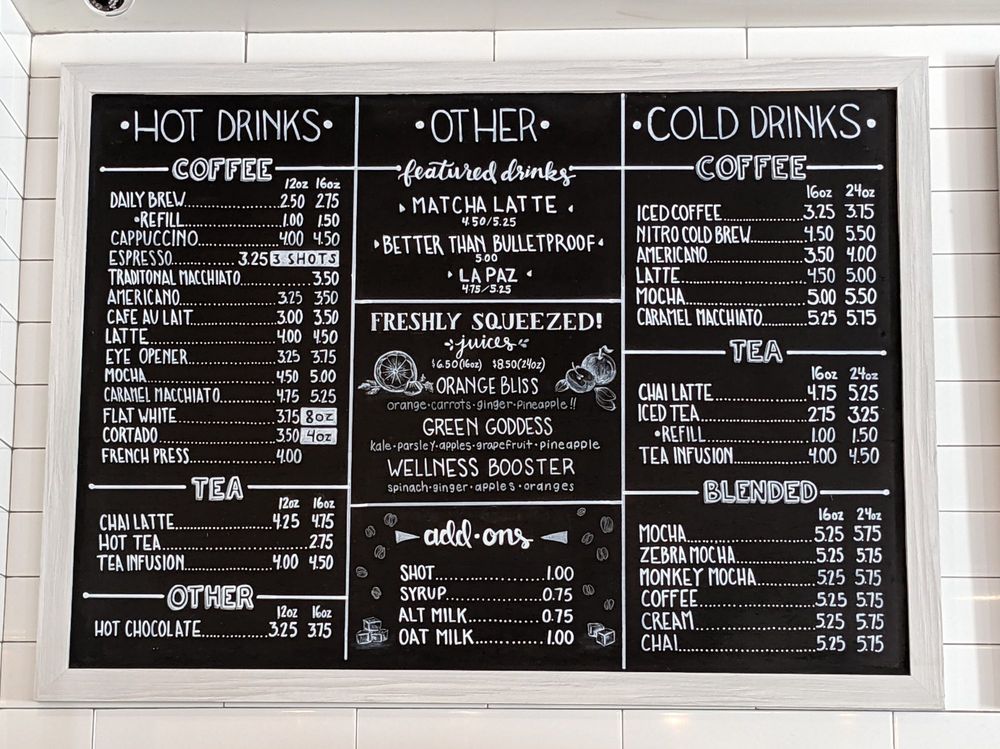 •HOT DRINKS•
COFFEE
12oz 16oz
DAILY BREW 2.50 2.75
•REFILL 1.00 1.50
CAPPUCCINO 4.00 4.50
ESPRESSO 3.25 3 SHOTS
TRADITONAL MACCHIATO 3.50
AMERICANO 3.25 3.50
CAFE AU LAIT 3.00 3.50
LATTE 4.00 4.50
EYE OPENER 3.25 3.75
MOCHA 4.50 5.00
CARAMEL MACCHIATO 4.75 5.25
FLAT WHITE 3.75 8oz
CORTADO 3.50 4oz
FRENCH PRESS 4.00
TEA
12oz 16oz
CHAI LATTE 4.25 4.75
HOT TEA 2.75
TEA INFUSION 4.00 4.50
OTHER
12oz 16oz
HOT CHOCOLATE 3.25 3.75
•OTHER•
featured drinks
MATCHA LATTE
4.50/5.25
BETTER THAN BULLETPROOF
5.00
LA PAZ
4.75/5.25
FRESHLY SQUEEZED!
juices
$6.50(16oz) $8.50(24oz)
ORANGE BLISS
orange•carrots•ginger•pineapple!!
GREEN GODDESS
kale•parsley•apples•grapefruit•pineapple
WELLNESS BOOSTER
spinach•ginger•apples•oranges
add•ons
SHOT 1.00
SYRUP 0.75
ALT MILK 0.75
OAT MILK 1.00
•COLD DRINKS•
COFFEE
16oz 24oz
ICED COFFEE 3.25 3.75
NITRO COLD BREW 4.50 5.50
AMERICANO 3.50 4.00
LATTE 4.50 5.00
MOCHA 5.00 5.50
CARAMEL MACCHIATO 5.25 5.75
TEA
16oz 24oz
CHAI LATTE 4.75 5.25
ICED TEA 2.75 3.25
•REFILL 1.00 1.50
TEA INFUSION 4.00 4.50
BLENDED
16oz 24oz
MOCHA 5.25 5.75
ZEBRA MOCHA 5.25 5.75
MONKEY MOCHA 5.25 5.75
COFFEE 5.25 5.75
CREAM 5.25 5.75
CHAI 5.25 5.75